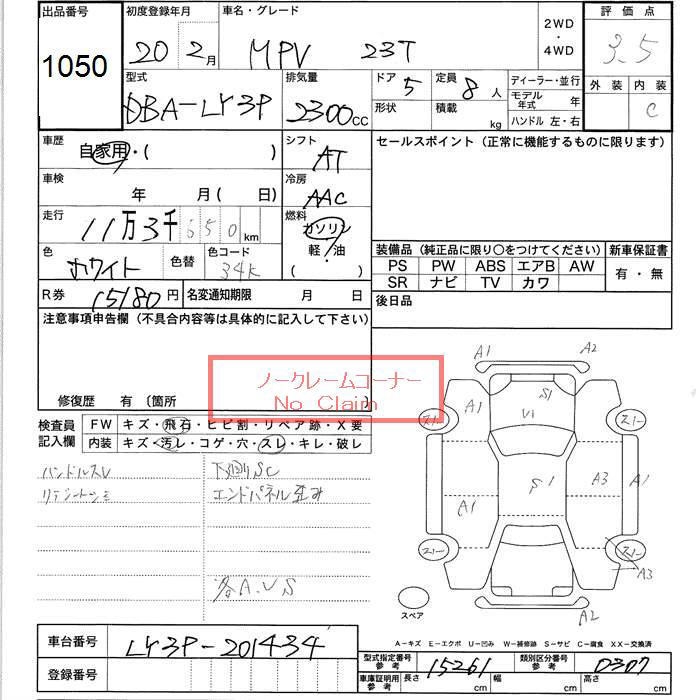 出品番号 初度登録年月 車名・グレード 2WD・4WD 評価点
1050 20 2月 MPV 23T 3.5
型式 排気量 ドア 5 定員 8人 ディーラー・並行 外装 内装
DBA-LY3P 2300cc 形状 積載 kg モデル年式 年 C
ハンドル 左・右
車歴 自家用・( ) シフト AT セールスポイント(正常に機能するものに限ります)
車検 年 月(日) 冷房 AAC
走行 11万3千 550km 燃料 ガソリン
軽・油
( )
色 ホワイト 色替 色コード 34K
装備品(純正品に限り○をつけてください) 新車保証書
PS PW ABS エアB AW 有・無
SR ナビ TV カワ
R券 15180円 名変通知期限 月 日 後日品
注意事項申告欄(不具合内容等は具体的に記入して下さい)
ノークレームコーナー
No Claim
修復歴 有(箇所
検査員記入欄 FW キズ・飛石・ヒビ割・リペア跡・X要
内装 キズ・汚レ・コゲ・穴・スレ・キレ・破レ
ハンドルスレ 下回りSC
エンドパネル歪み
各A.U.S
A1 A2
A1 S1 スレ スレ
U1
S1 A3 A1
A1
スレ スレ
A3
スペア A2
A-キズ E-エクボ U-凹み W-補修跡 S-サビ C-腐食 XX-交換済
車台番号 LY3P-201434
登録番号
型式指定番号 参考 15261 類別区分番号 参考 0307
車庫証明記入欄 参考 長さ cm 幅 cm 高さ cm